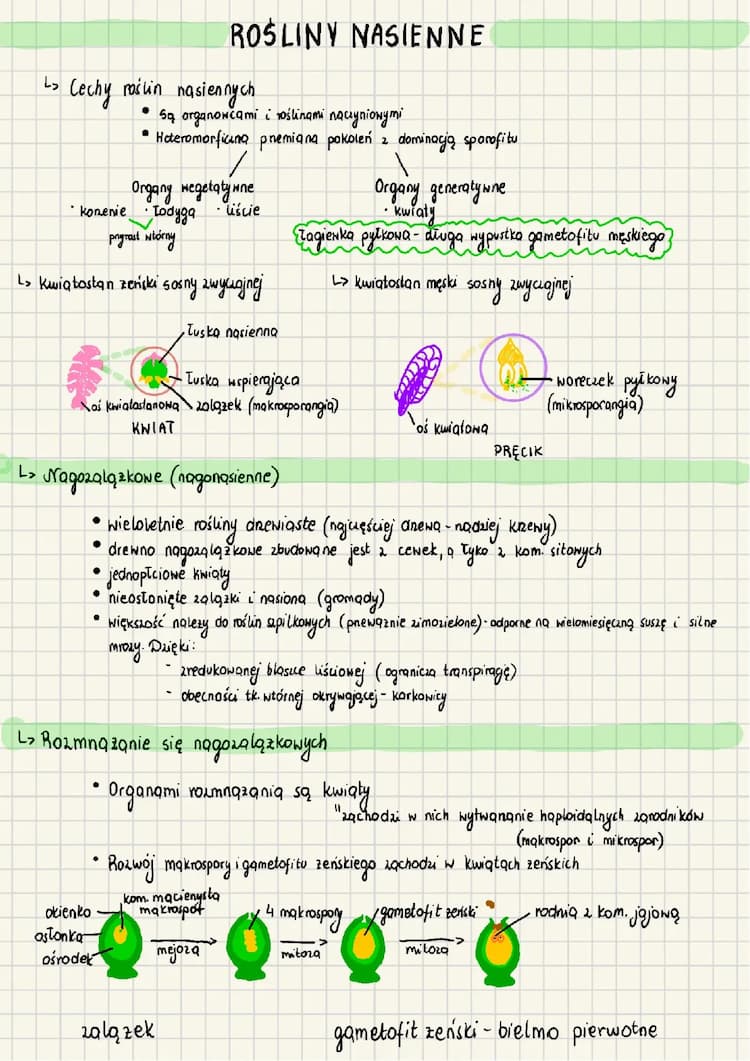 ROŚLINY NASIENNE
↳ Cechy roślin nasiennych
• są organowcami i roślinami naczyniowymi
• Heteromorficzna przemiana pokoleń z dominacją sporofitu
Organy wegetatywne
· korzenie · łodyga · liście
przyrost wtórny
Organy generatywne
· kwiaty
łagiewka pyłkowa - długa wypustka gametofitu męskiego
↳ Kwiatostan żeński sosny zwyczajnej
↳ kwiatostan męski sosny zwyczajnej
łuska nasienna
łuska wspierająca
oś kwiatostanowa
zalążek (makrosporangia)
KWIAT
woreczek pyłkowy
(mikrosporangia)
oś kwiatowa
PRĘCIK
↳ Nagozalążkowe (nagonasienne)
• wieloletnie rośliny drzewiaste (najczęściej drzewa - rzadziej krzewy)
• drewno nagozalążkowe zbudowane jest z cewek, a łyko z kom. sitowych
• jednopłciowe kwiaty
• nieosłonięte zalążki i nasiona (gromady)
• większość należy do roślin szpilkowych (przeważnie zimozielone) - odporne na wielomiesięczną suszę i silne
mrozy. Dzięki:
- zredukowanej blaszce liściowej (ogranicza transpirację)
- obecności tk. wtórnej okrywającej - korkowicy
↳ Rozmnażanie się nagozalążkowych
• Organami rozmnażania są kwiaty
"zachodzi w nich wytwarzanie haploidalnych zarodników
(makrospor i mikrospor)
• Rozwój makrospory i gametofitu żeńskiego zachodzi w kwiatach żeńskich
okienko
osłonka
ośrodek
kom. macierzysta
makrospor
mejoza
4 makrospory
mitoza
gametofit żeński
mitoza
rodnia z kom. jajową
zalążek
gametofit żeński - bielmo pierwotne